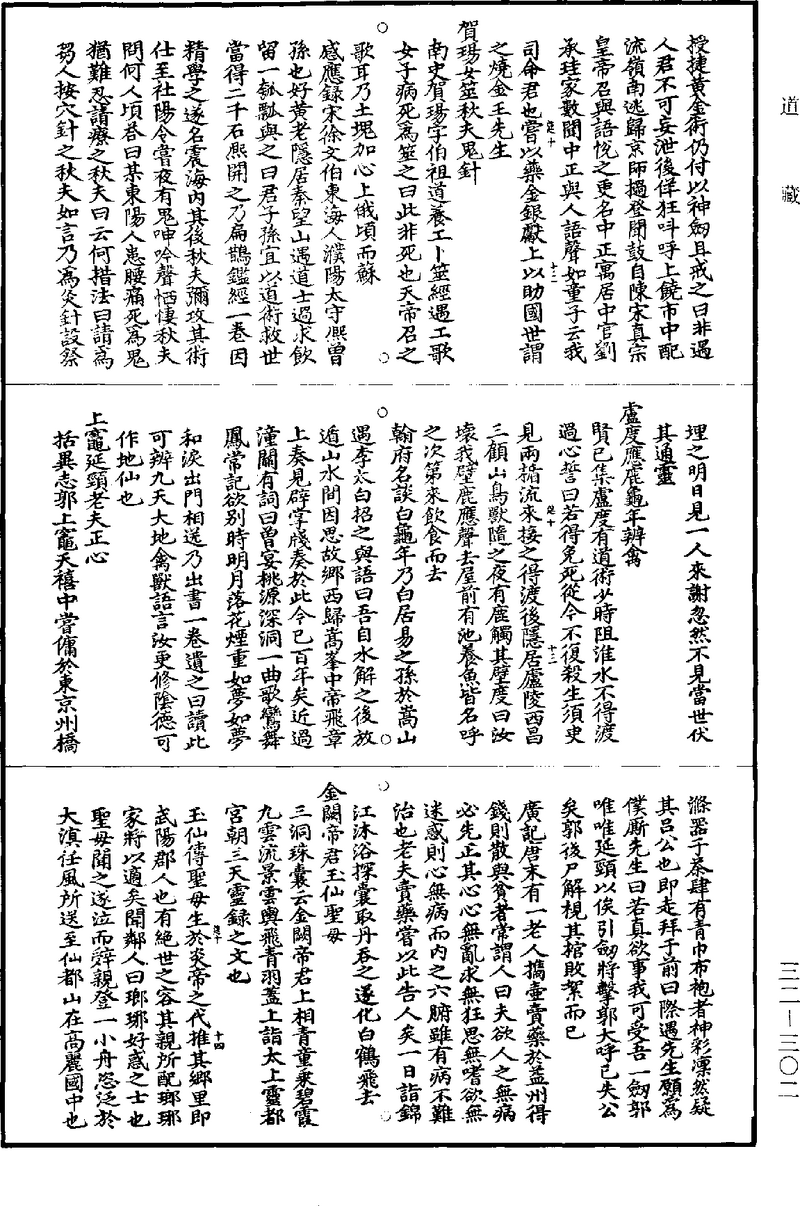 道藏
授捷黃金術仍付以神劒且戒之曰非遇
人君不可妄泄後佯狂呌呼上饒市中配
流嶺南逃歸京師撾登聞鼓自陳宋真宗
皇帝召與語悅之更名中正寓居中官劉
承珪家數聞中正與人語聲如童子云我
司命君也嘗以藥金銀獻上以助國世謂
之燒金王先生
賀瑒女筮秋夫鬼針
南史賀瑒字伯祖道養工卜筮經遇工歌
女子病死為筮之曰此非死也天帝召之
歌耳乃土塊加心上俄頃而蘇
感應錄宋徐文伯東海人濮陽太守熙曾
孫也好黃老隱居秦望山遇道士過求飲
留一瓠瓢與之曰君子孫宜以道術救世
當得二千石熙開之乃扁鵲鑑經一卷因
精學之遂名震海內其後秋夫彌攻其術
仕至社陽令嘗夜有鬼呻吟聲悽悽秋夫
問何人頃荅曰某東陽人患腰痛死為鬼
猶難忍請療之秋夫曰云何措法曰請為
芻人按穴針之秋夫如言乃為灸針設祭
埋之明日見一人來謝忽然不見當世伏
其通靈
盧度應鹿龜年辨禽
賢已集盧度有道術少時阻淮水不得渡
過心誓曰若得免死從今不復殺生須臾
見兩楯流來接之得渡後隱居廬陵西昌
三顧山鳥獸隨之夜有鹿觸其壁度曰汝
壞我壁鹿應聲去屋前有池養魚皆名呼
之次第來飲食而去
翰府名談白龜年乃白居易之孫於嵩山
遇李太白招之與語曰吾自水解之後放
遁山水間因思故鄉西歸嵩峯中帝飛章
上奏見辟掌牋奏於此今已百年矣近過
潼關有詞曰曾宴桃源深洞一曲歌鸞舞
鳳常記欲別時明月落花煙重如夢如夢
和淚出門相送乃出書一卷遺之曰讀此
可辨九天大地禽獸語言汝更修陰德可
作地仙也
上竈延頸老夫正心
括異志郭上竈天禧中嘗傭於東京州橋
滌器于茶肆有青巾布袍者神彩凜然疑
其呂公也即走拜于前曰際遇先生願為
僕厮先生曰若真欲事我可受吾一劒郭
唯唯延頸以俟引劒將擊郭大呼已失公
矣郭後尸解梘其棺敗絮而已
廣記唐末有一老人攜壷賣藥於益州得
錢則散與貧者常謂人曰夫欲人之無病
必先正其心心無亂求無狂思無嗜欲無
迷惑則心無病而內之六腑雖有病不難
治也老夫賣藥嘗以此告人矣一日詣錦
江沐浴探囊取丹吞之遂化白鶴飛去
金闕帝君玉仙聖母
三洞珠囊云金闕帝君上相青童乘碧霞
九雲流景雲輿飛青羽蓋上詣太上靈都
宮朝三天靈錄之文也
玉仙傳聖母生於炎帝之代推其鄉里即
武陽郡人也有絕世之容其親所配瑯琊
家將以適矣聞鄰人曰瑯琊好惑之士也
聖母聞之遂泣而辭親登一小舟恣泛於
大滇任風所送至仙都山在高麗國中也
三二—三〇二